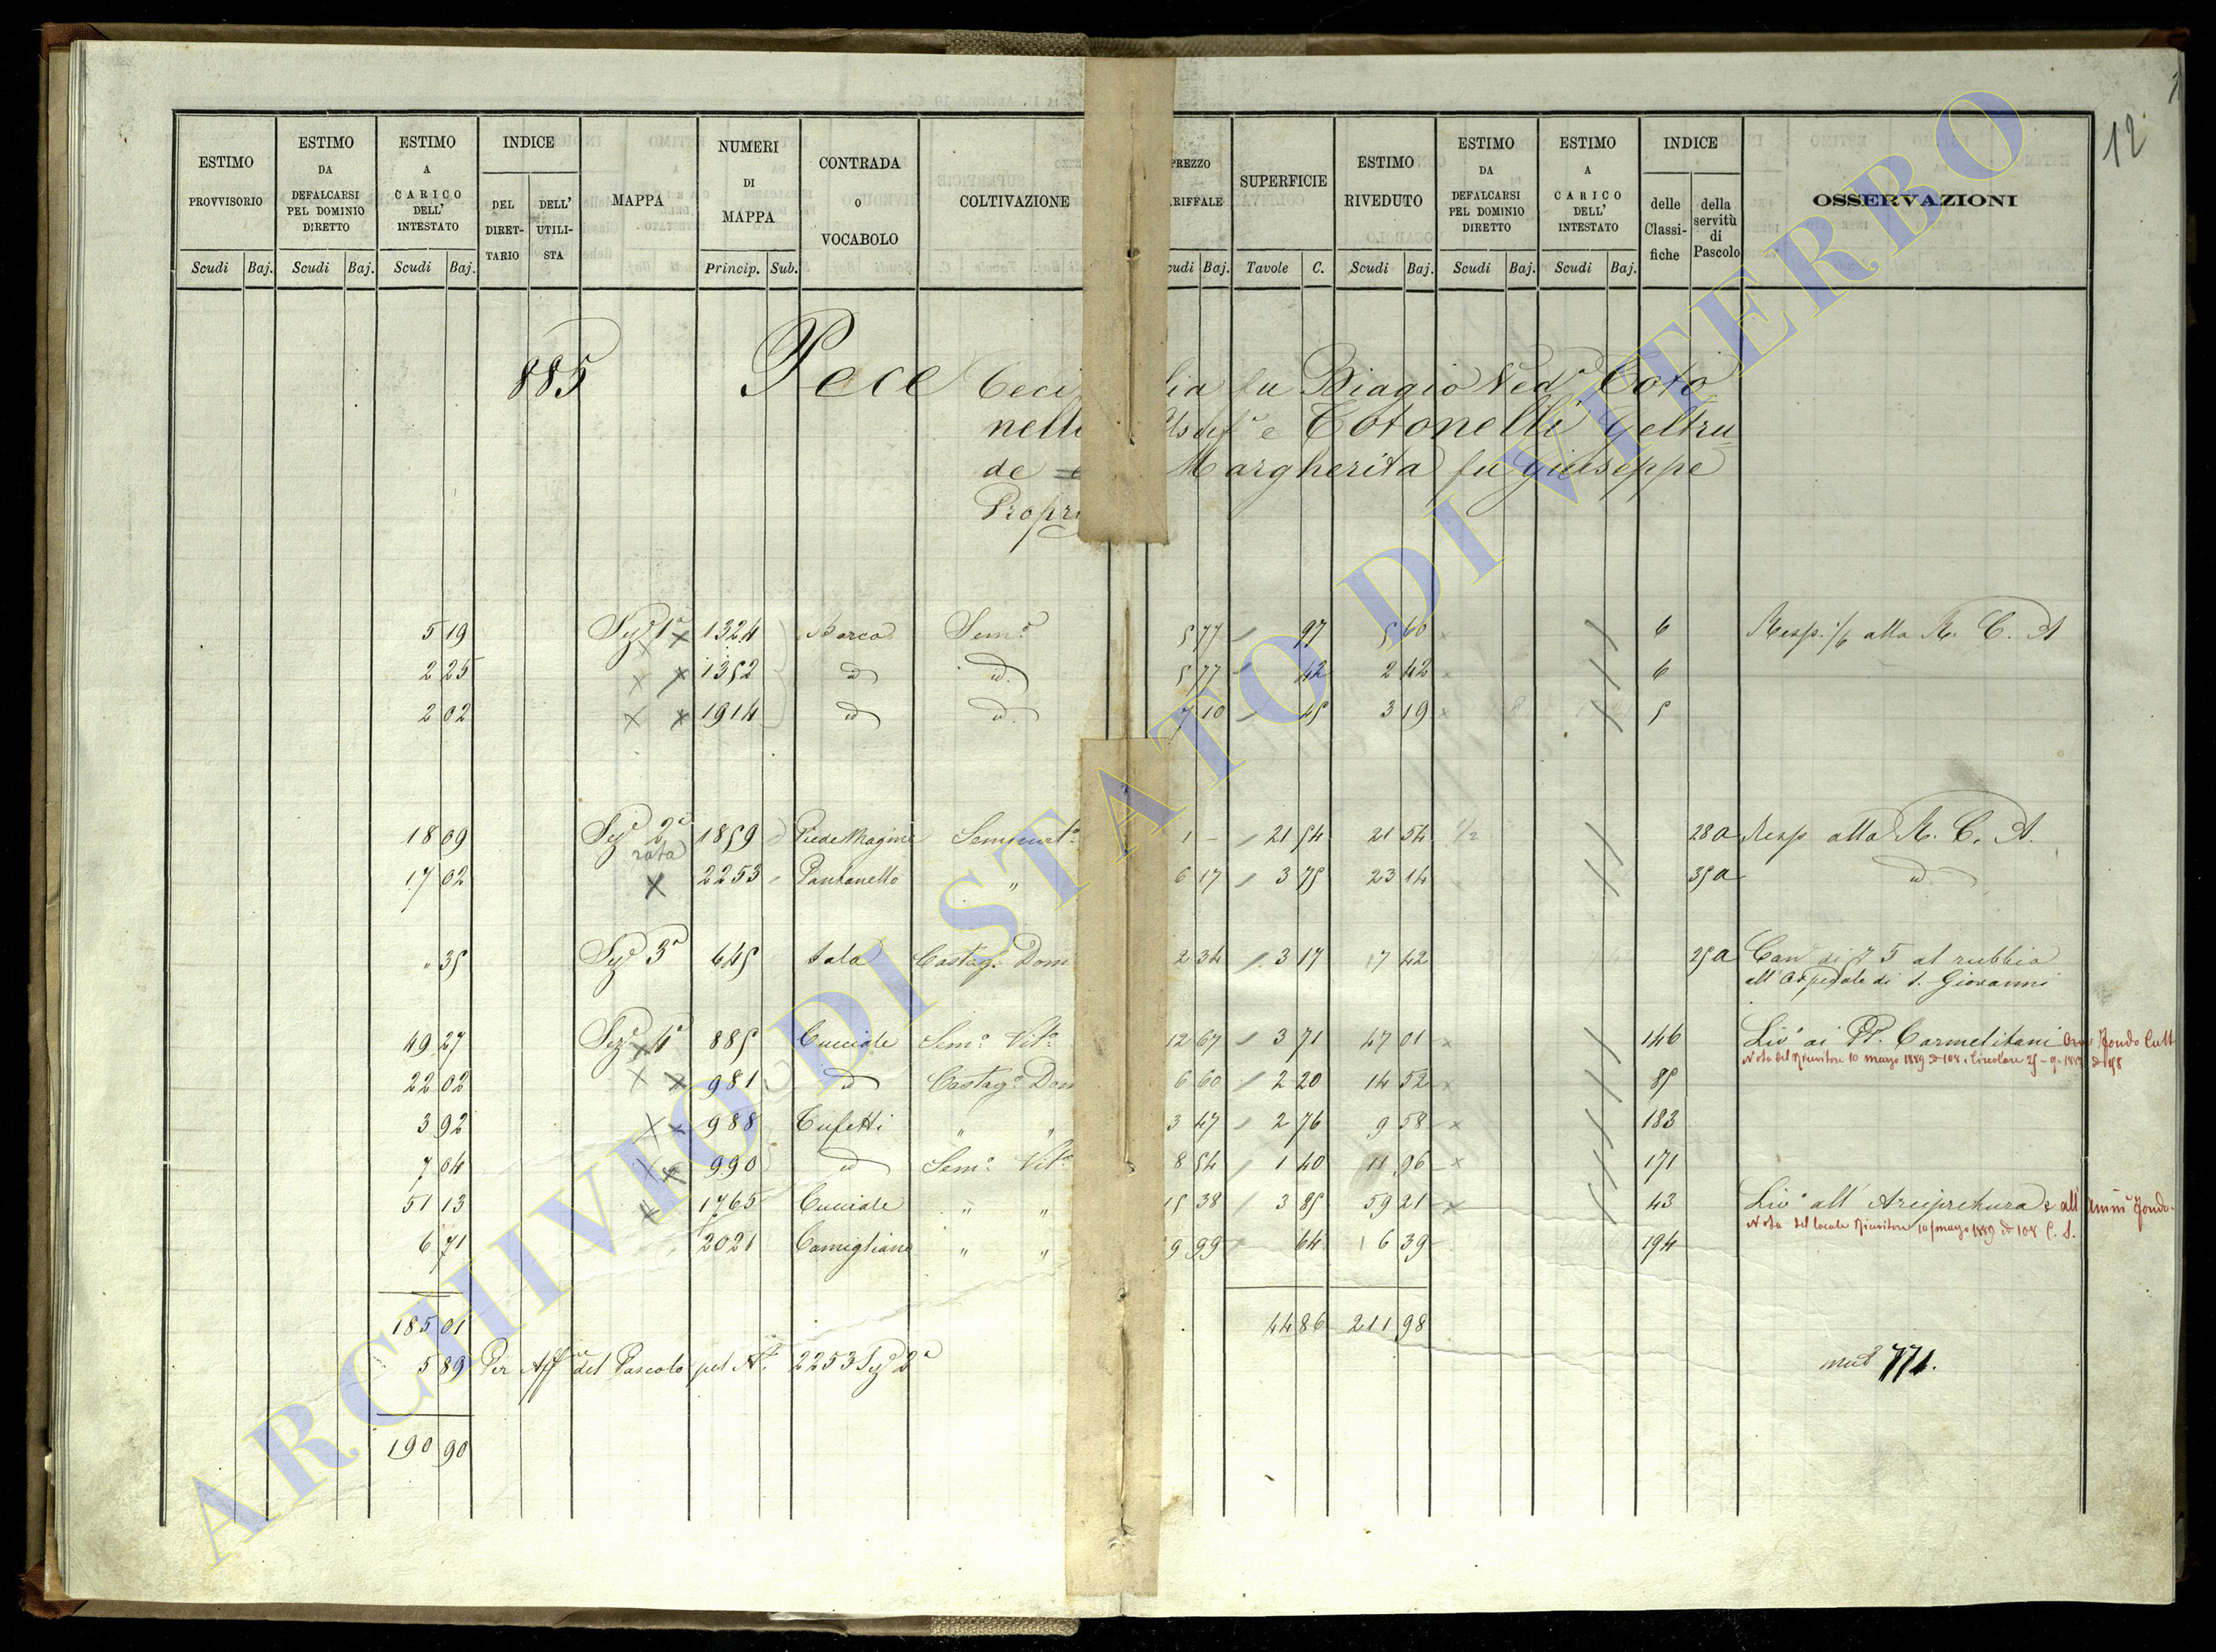 12
ESTIMO PROVVISORIO
ESTIMO DA DEFALCARSI PEL DOMINIO DIRETTO
ESTIMO A CARICO DELL' INTESTATO
INDICE
DEL DIRETTARIO
DELL' UTILISTA
MAPPA
NUMERI DI MAPPA
CONTRADA O VOCABOLO
COLTIVAZIONE
PREZZO
SUPERFICIE
ESTIMO RIVEDUTO
ESTIMO DA DEFALCARSI PEL DOMINIO DIRETTO
ESTIMO A CARICO DELL' INTESTATO
INDICE
delle Classifiche
della servitù di Pascolo
OSSERVAZIONI
Scudi Baj. Scudi Baj. Scudi Baj. Princip. Sub. Baj. Tavole C. Scudi Baj. Scudi Baj. Scudi Baj.
885 Pece lia fu Biagio Ved.a Coto
e Totonelli Geltru
de Margherita fu Giuseppe
5 19 Sez.e 1a 1324 Barco Sem.o 5 77 97 5 60 6 Resp. 1/6 alla R. C. A
2 25 1352 id id. 5 77 42 2 42 6
2 02 1914 id id. 7 10 45 3 19 5
18 09 Sez.e 2a 1859 1 - 21 54 21 54 1/2 28a Resp alla R. C. A.
rata
17 02 2253 Pantanello " 6 17 3 75 23 14 35a id
" 35 Sez.e 3a 645 Sala Castag. Dom 2 34 3 17 7 42 25a Can di 5 al rubbio
all'Ospedale di S. Giovanni
49 27 Sez.e 4a 885 Cuciale Sem.o Vit.o 12 67 3 71 47 01 146 Liv.o ai PP. Carmelitani Fondo Cult
Nota del Ricevitore 10 marzo 1889 108
22 02 981 id Castag.o Dom 6 60 2 20 14 52 85
3 92 988 Tufetti " " 3 47 2 76 9 58 183
7 04 990 id Sem.o Vit.o 8 54 1 40 11 96 171
51 13 1765 Cuciale " " 15 38 3 85 59 21 43 Liv.o all' Arcipretura all' Fondo
Nota del locale Ricevitore 10 marzo 1889 108
6 71 2021 Camigliano " " 9 99 64 6 39 194
185 01 44 86 211 98
5 89 Per Aff.e del Pascolo pel N.o 2253 Sez.e 2a 771.
190 90
ARCHIVIO DI STATO DI VITERBO